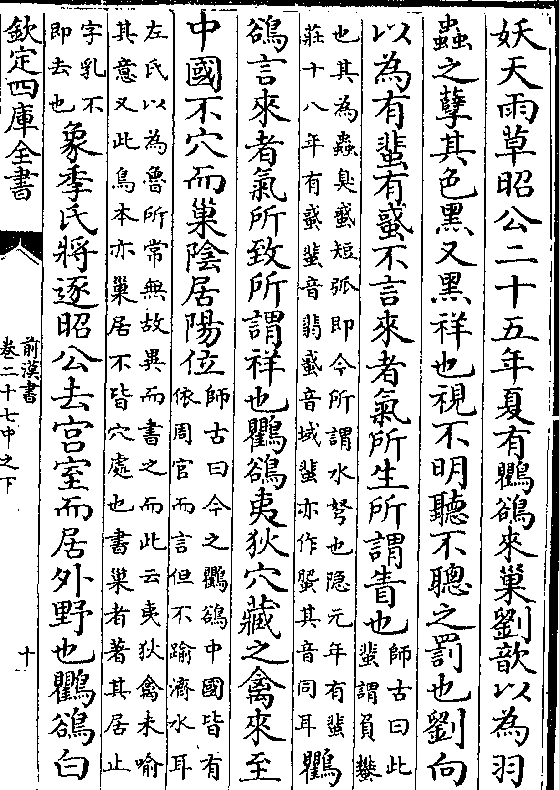 妖天雨草昭公二十五年夏有鸜鵒來巢劉歆以為羽
蟲之孽其色黑又黑祥也視不明聽不聰之罰也劉向
以為有蜚有蜮不言來者氣所生所謂眚也
師古曰此
蜚謂負蠜
也其為蟲臭蜮短弧即今所謂水弩也隠元年有蜚
莊十八年有蜮蜚音翡蜮音域蜚亦作其音同耳
鸜
鵒言來者氣所致所謂祥也鸜鵒夷狄穴藏之禽來至
中國不穴而巢陰居陽位
師古曰今之鸜鵒中國皆有
依周官而言但不踰濟水耳
左氏以為魯所常無故異而書之而此云夷狄禽未喻
其意又此鳥本亦巢居不皆穴處也書巢者著其居止
字乳不
即去也
象季氏將逐昭公去宮室而居外野也鸜鵒白
欽定四庫全書
前漢書
卷二十七中之下
十